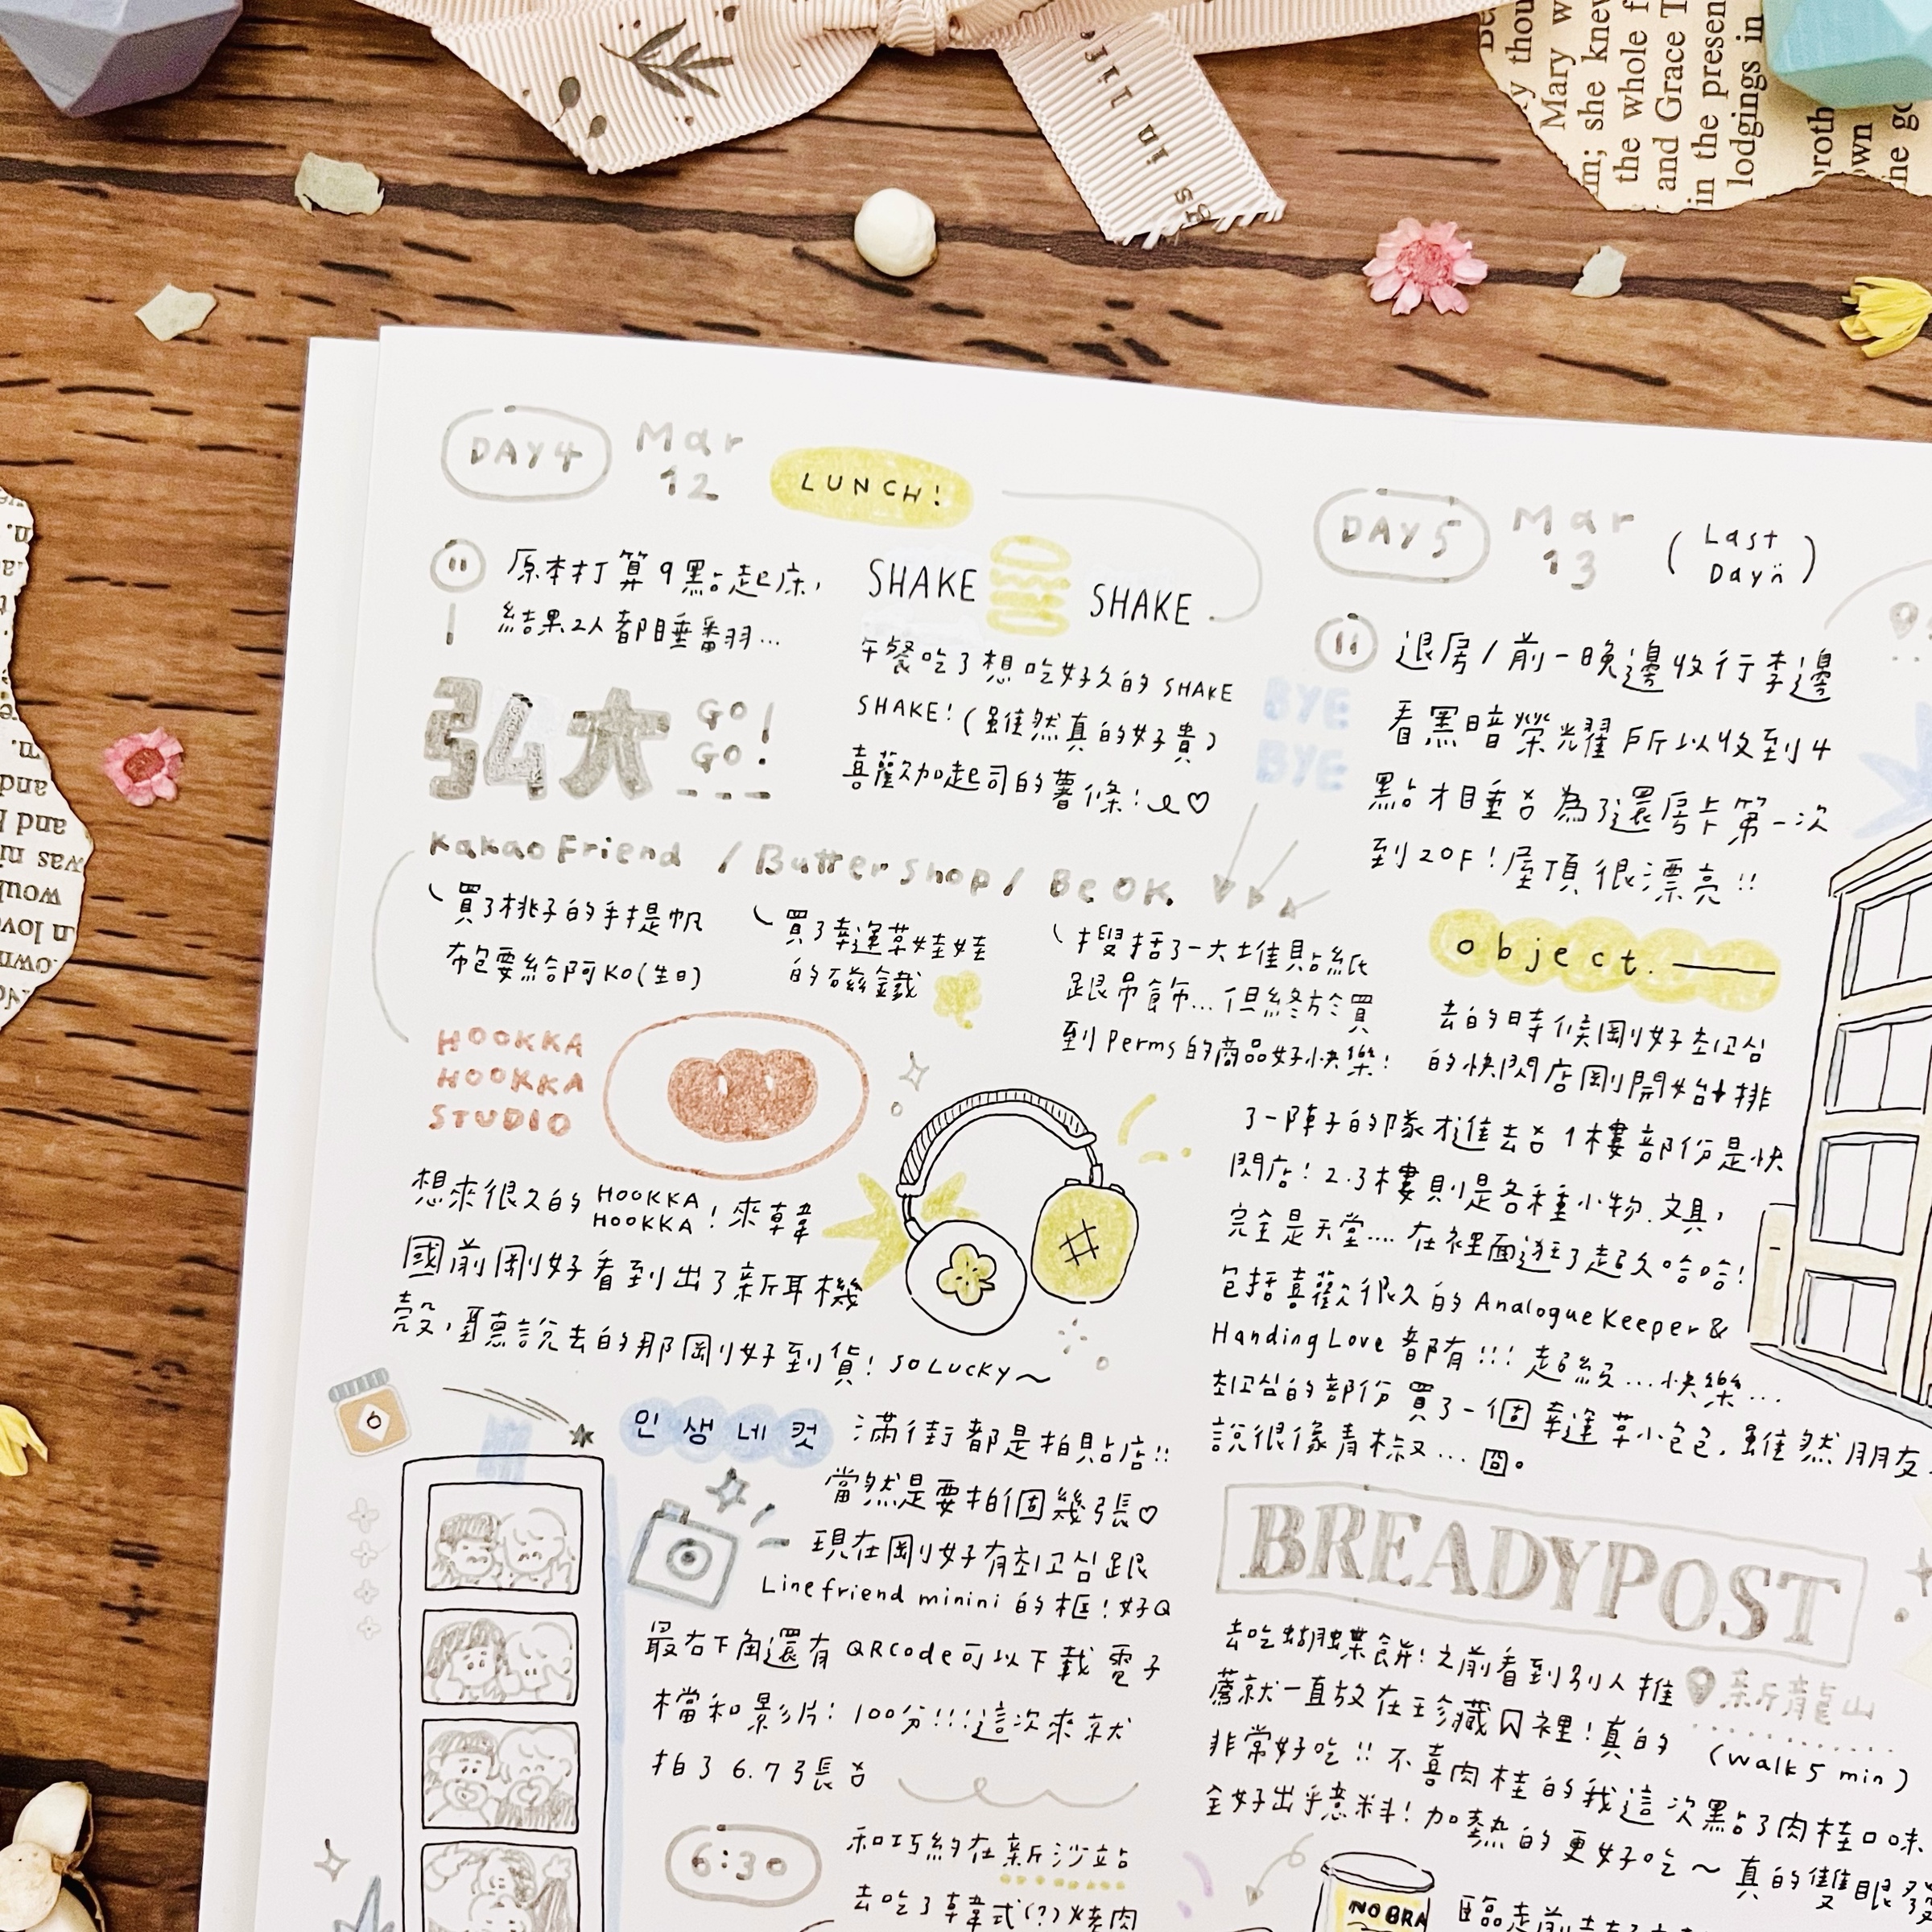 DAY4
Mar
12
LUNCH!
11
原本打算9點起床,
結果2人都睡翻...
弘大 GO! GO!
SHAKE SHAKE
午餐吃了想吃好久的 SHAKE
SHAKE! (雖然真的好貴)
喜歡加起司的薯條! ♡
Kakao Friend / Butter Shop / Be OK
買了桃子的手提帆
布包要給阿KO(生日)
買了幸運草娃娃
的磁鐵
搜括了一大堆貼紙
跟吊飾...但終於買
到 Perms 的商品好快樂!
HOOKKA
HOOKKA
STUDIO
想來很久的 HOOKKA HOOKKA! 來韓
國前剛好看到出了新耳機
殼,聽說去的那剛好到貨! SO LUCKY~
인생네컷
滿街都是拍貼店!!
當然是要拍個幾張♡
現在剛好有최고심跟
Linefriend minini 的框! 好Q
最右下角還有 QRcode 可以下載電子
檔和影片! 100分!!! 這次來就
拍了 6.7張
6:30
和巧約在新沙站
去吃了韓式(?)烤肉
DAY5
Mar
13
(Last Day)
11
退房/前一晚邊收行李邊
看黑暗榮耀所以收到4
點才睡 為了還房卡第一次
到20F! 屋頂很漂亮!!
BYE
BYE
object.
去的時候剛好최고심
的快閃店剛開始 排
了一陣子的隊才進去 1樓部份是快
閃店! 2.3樓則是各種小物.文具,
完全是天堂.... 在裡面逛了超久哈哈!
包括喜歡很久的 Analogue Keeper &
Handing Love 都有!!! 超級...快樂...
최고심的部份買了一個幸運草小包包,雖然朋友
說很像青椒...囧。
BREADYPOST
去吃蝴蝶餅! 之前看到別人推
薦就一直放在珍藏裡! 真的
新龍山
(walk 5 min)
非常好吃!! 不喜肉桂的我這次點了肉桂口味
全好出乎意料! 加熱的更好吃~ 真的雙眼發
NO BRA
臨走前
Mary w
; she knew
the whole f
and Grace T
in the present
lodgings in